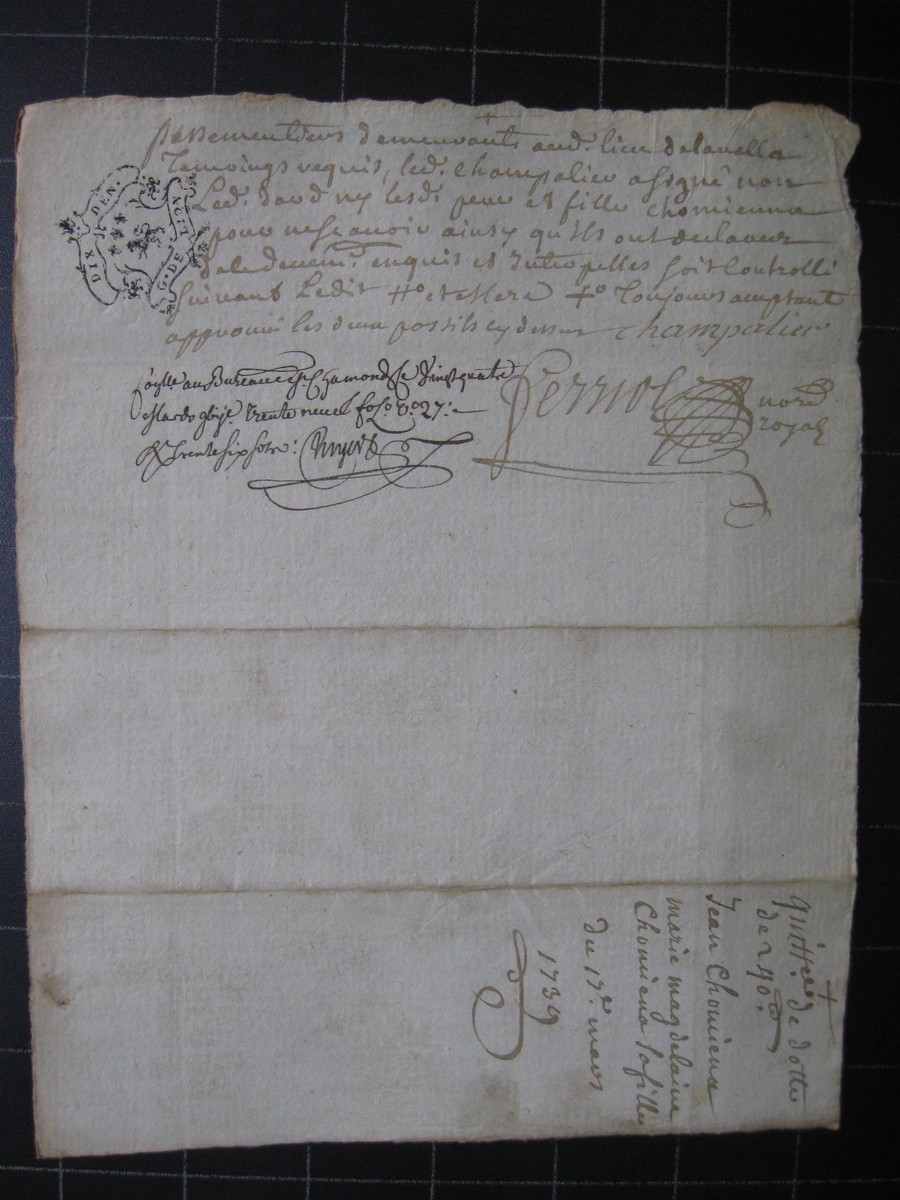 passementiers demeurants aud. lieu delavalla
Temoings requis, led. Champalier a signé non
Led. ny lesd. pere et fille Chomienna
pour ne scavoir ainsy qu'ils ont declaré
enquis et Interpelles soit Controllé
suivant Ledit Toujours acceptant
approuvé les deux cy dessus Champalier
DIX DEN.
G. DE
au Bureau de St. Chamond Le vingt quatre
Mars trente neuf fol. 27:
R trente six sols:
Ferriol
nore
royal
quittce de dotte
de 240
Jean Chomiena
marie magdelaine
Chomiena sa fille
du 17e mars
1739